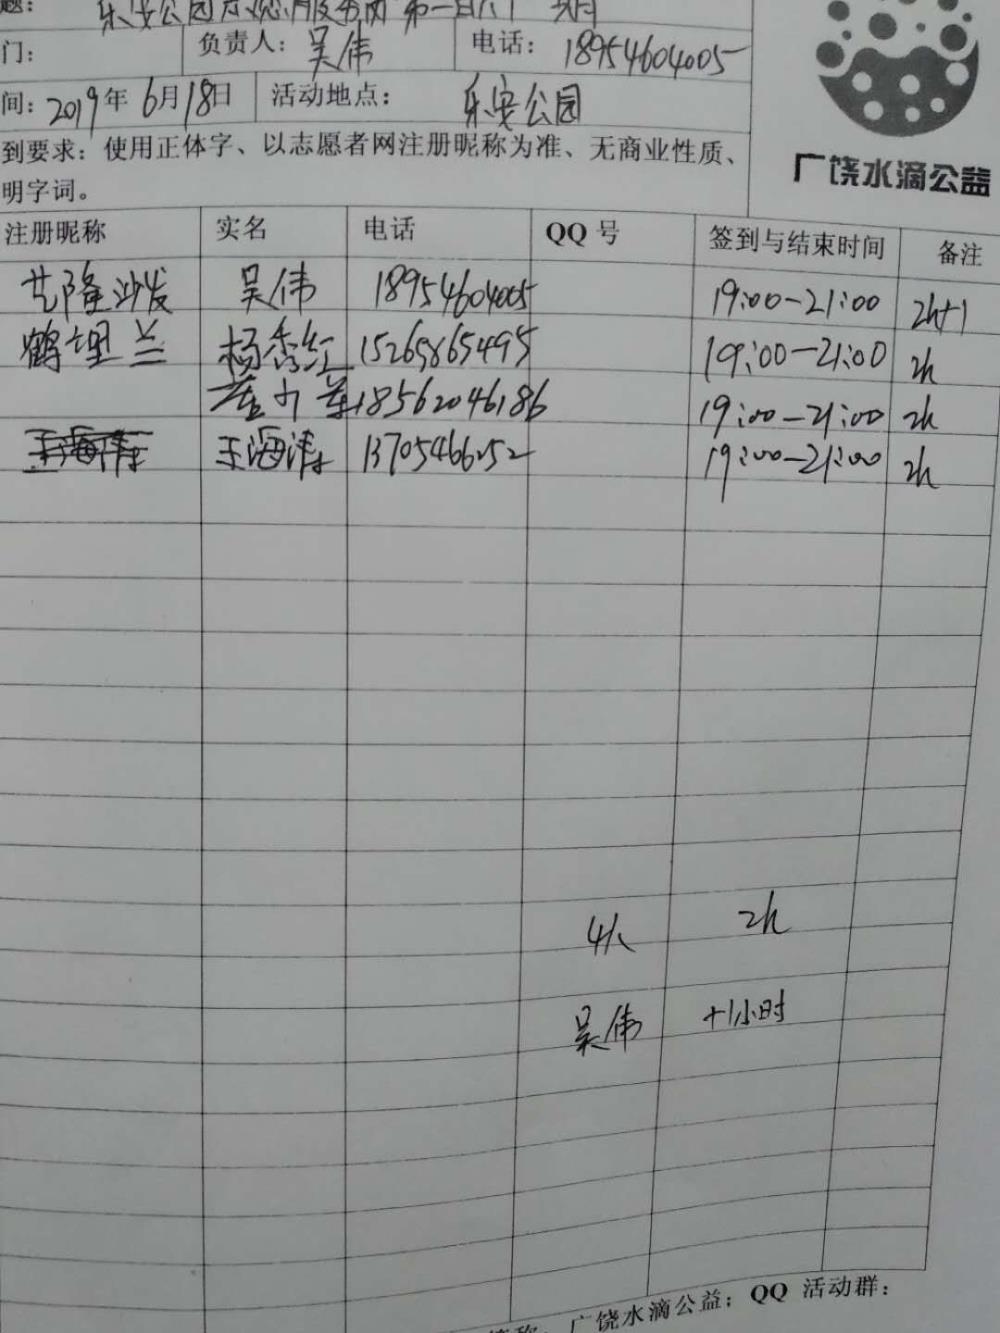 题：乐安公园
门： 负责人：吴伟 电话：18954604005
间：2019年6月18日 活动地点：乐安公园
到要求：使用正体字、以志愿者网注册昵称为准、无商业性质、
明字词。
广饶水滴公益
注册昵称 实名 电话 QQ 号 签到与结束时间 备注
艺隆沙发 吴伟 18954604005 19:00-21:00 2h+1
鹤望兰 杨秀红 15265865495 19:00-21:00 2h
18562046186 19:00-21:00 2h
王海涛 王海涛 13705466252 19:00-21:00 2h
4人 2h
吴伟 +1小时
广饶水滴公益；QQ 活动群：